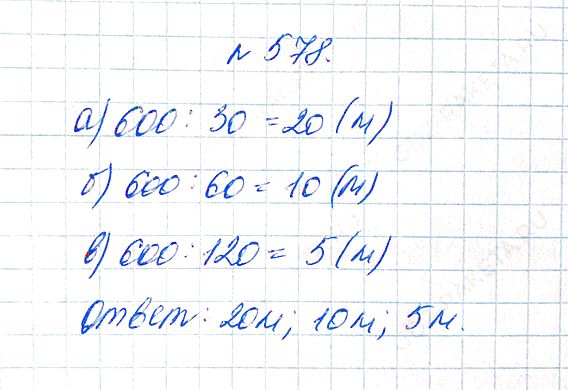 № 578.
а) 600 : 30 = 20 (м)
б) 600 : 60 = 10 (м)
в) 600 : 120 = 5 (м)
Ответ: 20м; 10м; 5м.